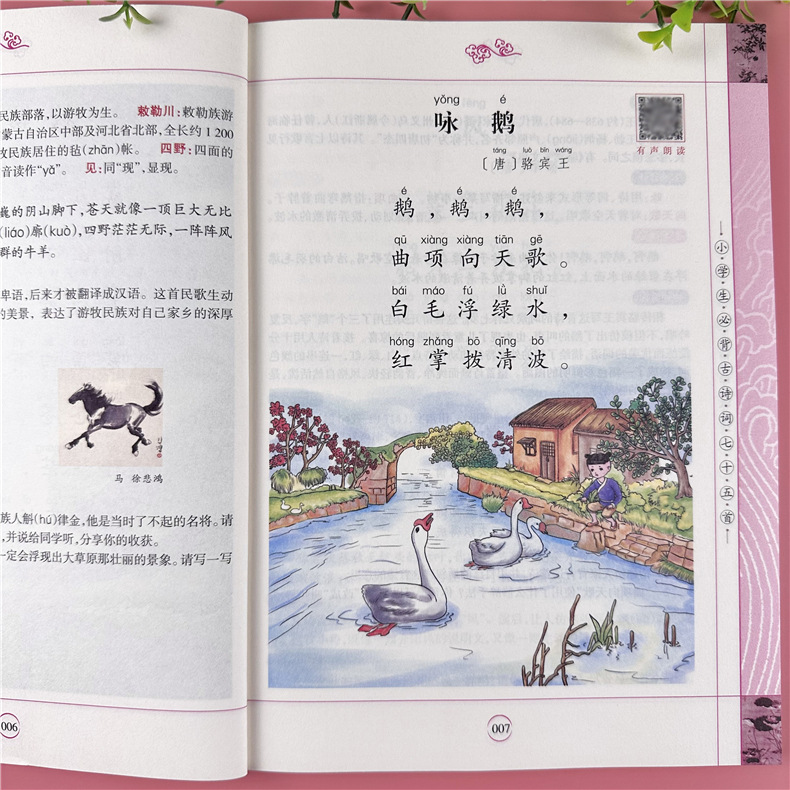 民族部落，以游牧为生。 敕勒川：敕勒族游
蒙古自治区中部及河北省北部，全长约1 200
牧民族居住的毡(zhān)帐。 四野：四面的
音读作“yǎ”。 见：同“现”，显现。
巍的阴山脚下，苍天就像一顶巨大无比
(liáo)廓(kuò)，四野茫茫无际，一阵阵风
群的牛羊。
卑语，后来才被翻译成汉语。这首民歌生动
的美景，表达了游牧民族对自己家乡的深厚
马 徐悲鸿
族人斛(hú)律金，他是当时了不起的名将。请
，并说给同学听，分享你的收获。
一定会浮现出大草原那壮丽的景象。请写一写
006
yǒng é
咏 鹅
táng luò bīn wáng
〔唐〕骆宾王
有声朗读
é é é
鹅，鹅，鹅，
qū xiàng xiàng tiān gē
曲项向天歌。
bái máo fú lǜ shuǐ
白毛浮绿水，
hóng zhǎng bō qīng bō
红掌拨清波。
007
小·学·生·必·背·古·诗·词·七·十·五·首